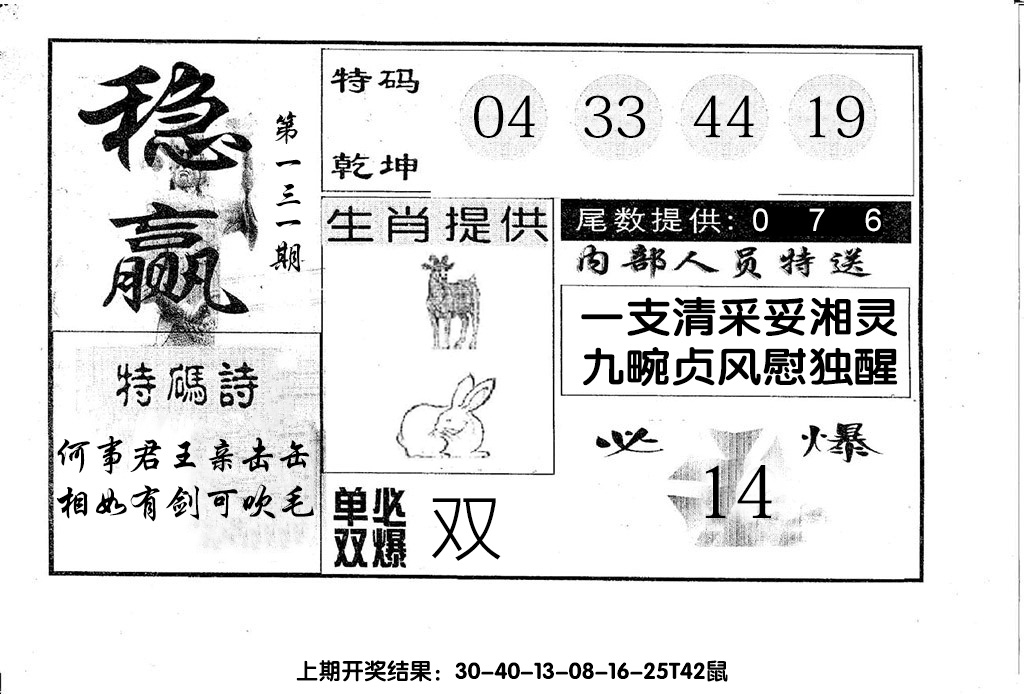 稳赢
第一三一期
特码
乾坤
04 33 44 19
生肖提供
尾数提供: 0 7 6
内部人员特送
一支清采妥湘灵
九畹贞风慰独醒
特碼詩
何事君王亲击缶
相如有剑可吹毛
单双必爆
双
必爆
14
上期开奖结果：30-40-13-08-16-25T42鼠